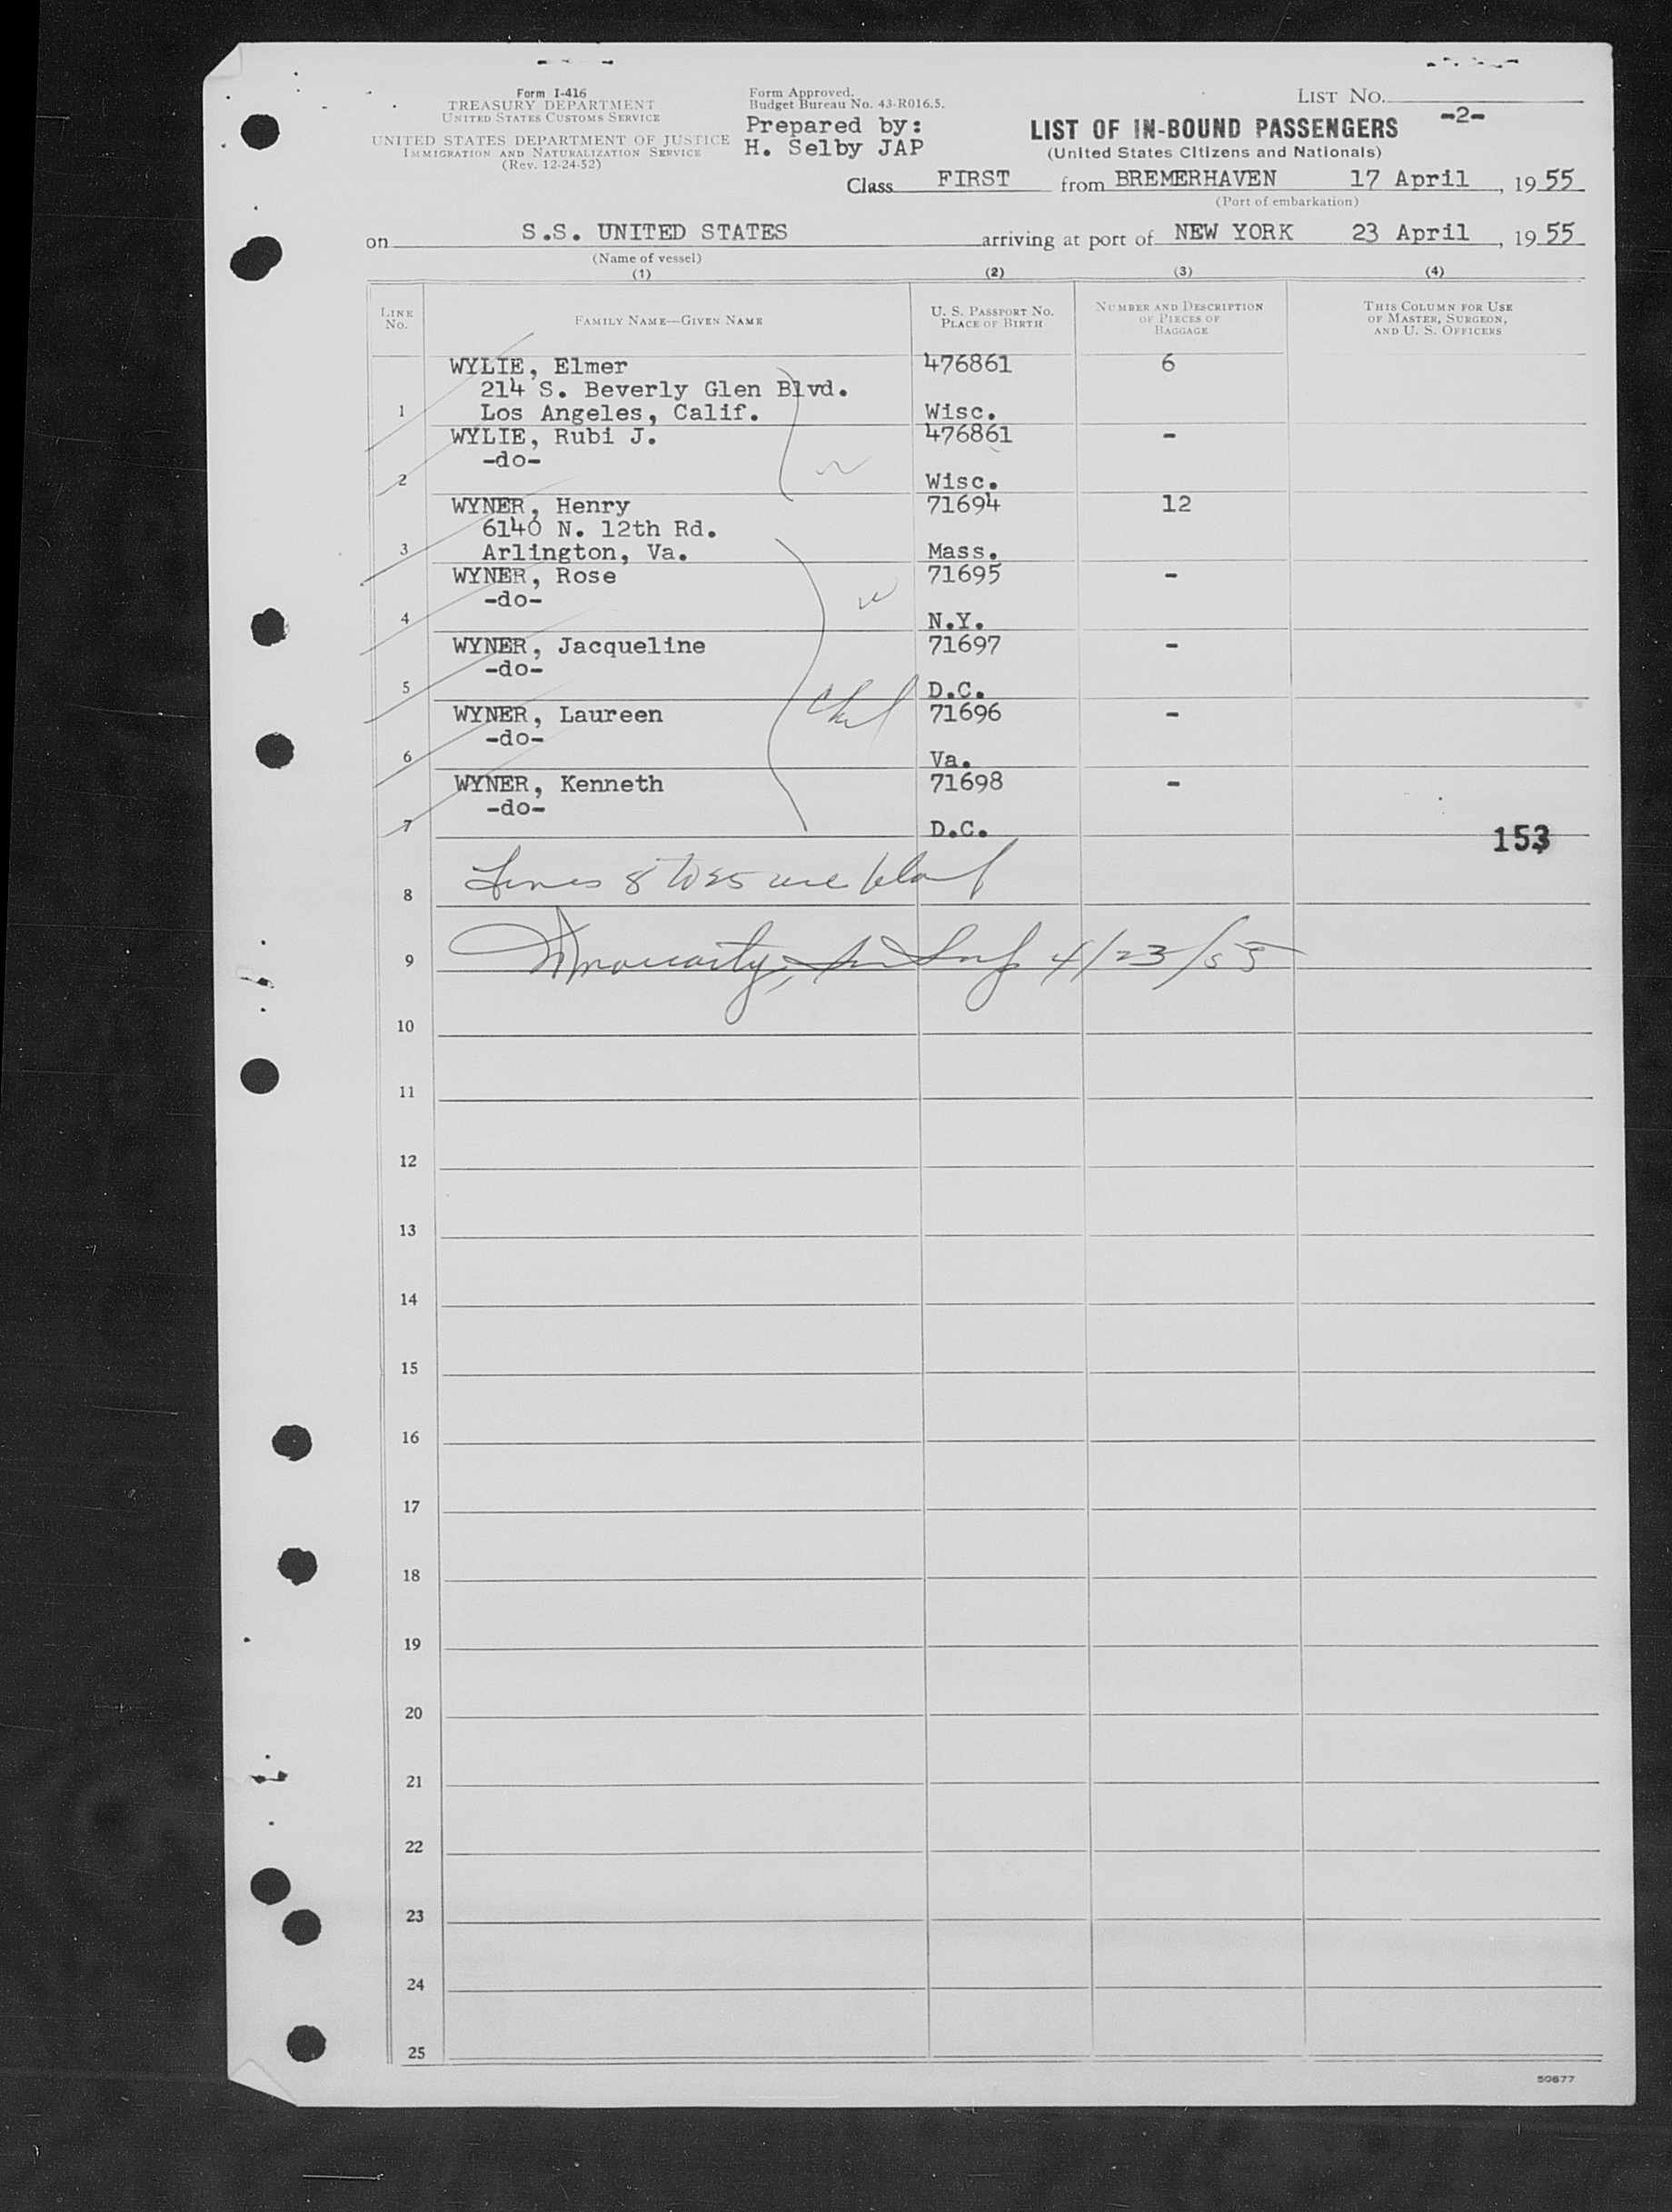 Form I-416
TREASURY DEPARTMENT
UNITED STATES CUSTOMS SERVICE
UNITED STATES DEPARTMENT OF JUSTICE
IMMIGRATION AND NATURALIZATION SERVICE
(Rev. 12-24-52)
Form Approved.
Budget Bureau No. 43-R016.5.
Prepared by:
H. Selby JAP
LIST NO.
-2-
LIST OF IN-BOUND PASSENGERS
(United States Citizens and Nationals)
Class FIRST from BREMERHAVEN 17 April, 1955
(Port of embarkation)
on S.S. UNITED STATES arriving at port of NEW YORK 23 April, 1955
(Name of vessel)
(1) (2) (3) (4)
LINE NO. FAMILY NAME—GIVEN NAME U. S. PASSPORT NO. PLACE OF BIRTH NUMBER AND DESCRIPTION OF PIECES OF BAGGAGE THIS COLUMN FOR USE OF MASTER, SURGEON, AND U. S. OFFICERS
WYLIE, Elmer 476861 6
214 S. Beverly Glen Blvd.
1 Los Angeles, Calif. Wisc.
WYLIE, Rubi J. 476861 -
-do-
2 Wisc.
WYNER, Henry 71694 12
6140 N. 12th Rd.
3 Arlington, Va. Mass.
WYNER, Rose 71695 -
-do-
4 N.Y.
WYNER, Jacqueline 71697 -
-do-
5 D.C.
WYNER, Laureen 71696 -
-do-
6 Va.
WYNER, Kenneth 71698 -
-do-
7 D.C.
153
8 Lines 8 to 25 are blank
9 4/23/55
10
11
12
13
14
15
16
17
18
19
20
21
22
23
24
25
50677